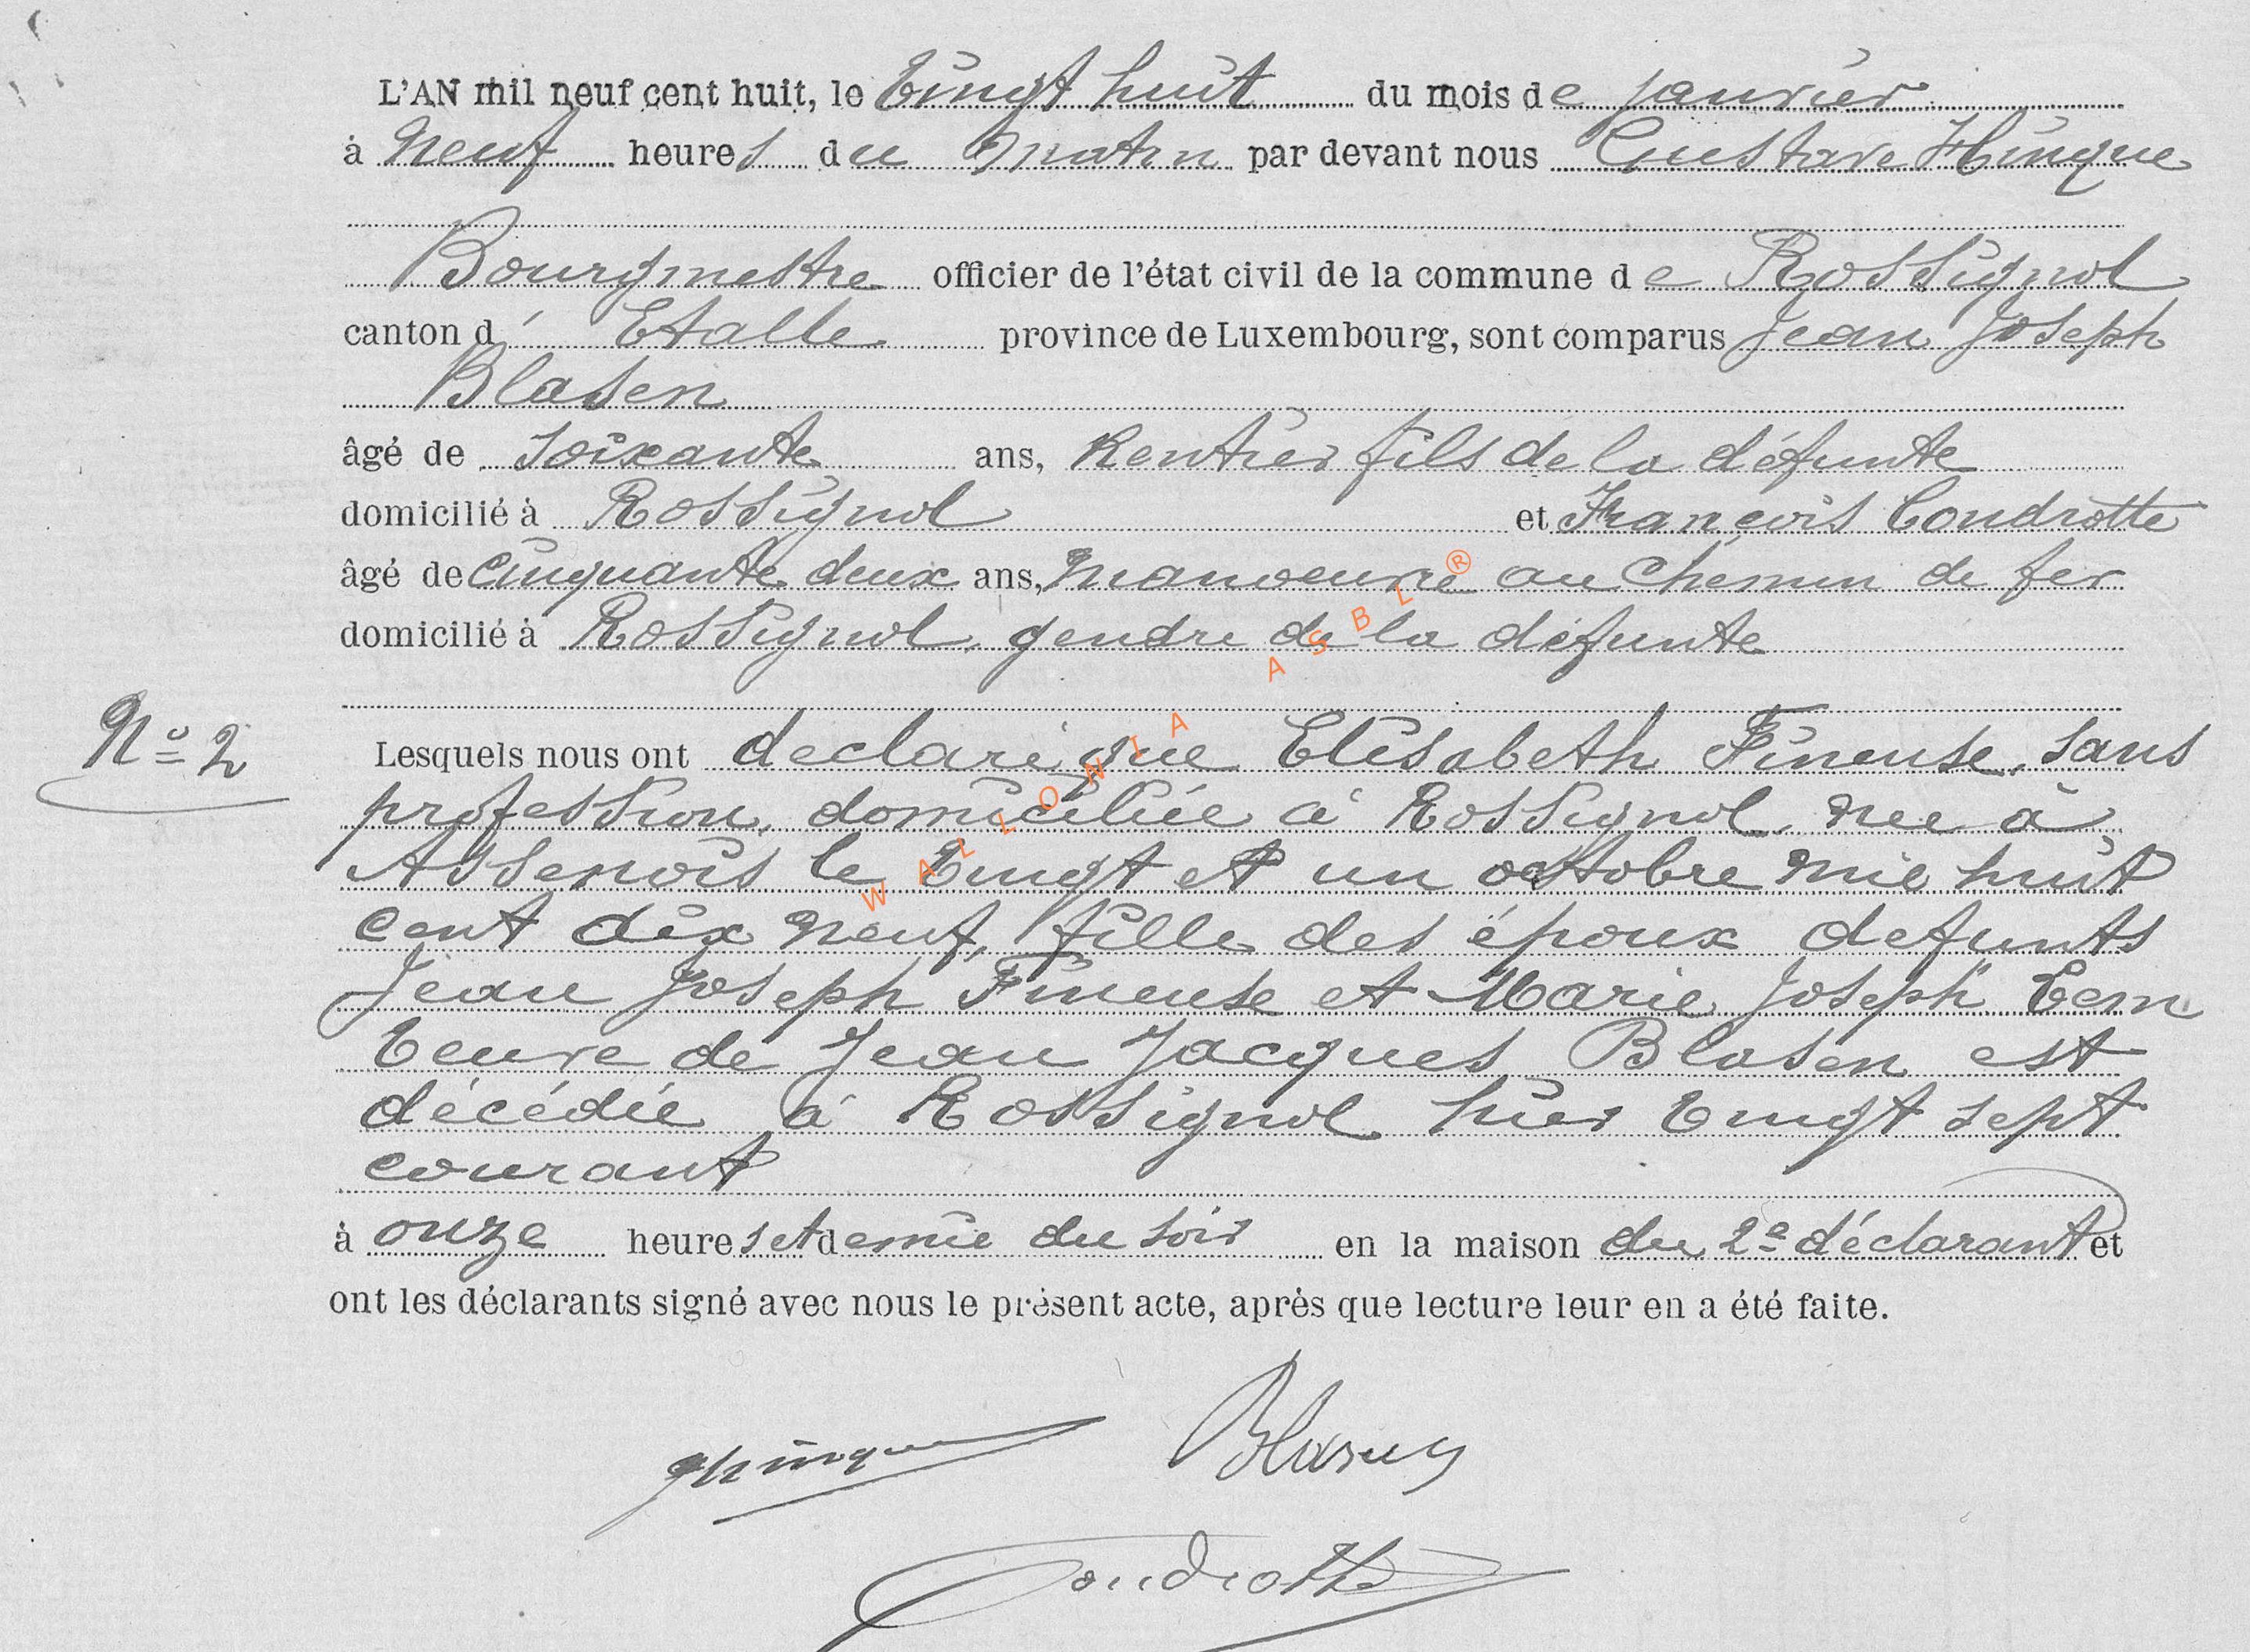 L'AN mil neuf cent huit, le Vingt huit du mois de janvier
à neuf heures du matin par devant nous Gustave Hinque
Bourgmestre officier de l'état civil de la commune de Rossignol
canton d' Etalle province de Luxembourg, sont comparus Jean Joseph
Blasen
âgé de soixante ans, Rentier fils de la défunte
domicilié à Rossignol et François Condrotte
âgé de cinquante deux ans, manoeuvre au chemin de fer
domicilié à Rossignol, gendre de la défunte
N° 2
Lesquels nous ont declaré que Elisabeth Fineuse, sans
profession, domiciliée à Rossignol, née à
Assenois le Vingt et un octobre mil huit
cent dix neuf, fille des époux defunts
Jean Joseph Fineuse et Marie Joseph
Veuve de Jean Jacques Blasen est
décédée à Rossignol hier Vingt sept
courant
à onze heures et demie du soir en la maison du 2e déclarant et
ont les déclarants signé avec nous le présent acte, après que lecture leur en a été faite.
Blasen
Condrotte
WALLONIA ASBL ®